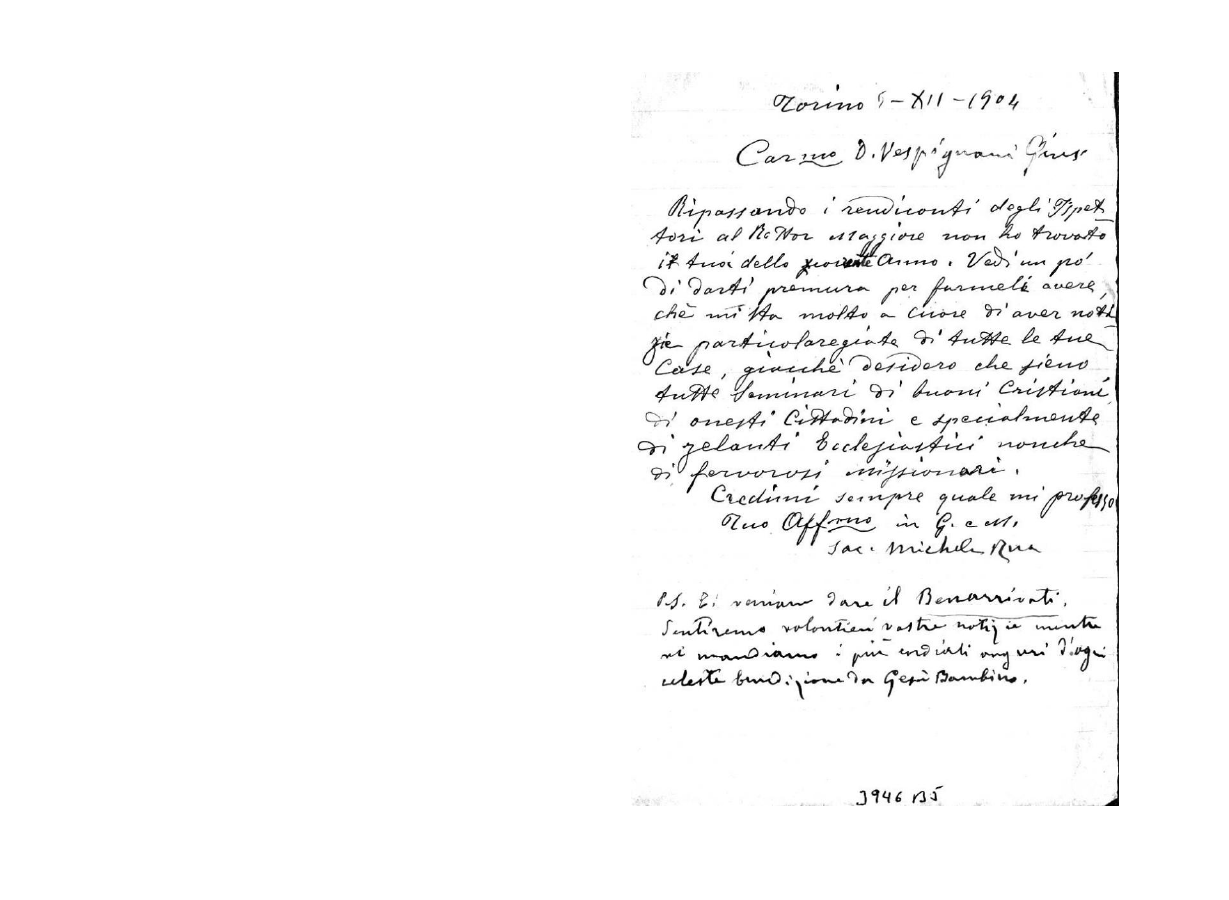 Torino 5-XII-1904
Car.mo D. Vespignani Gius
Ripassando i rendiconti degli Ispet
tori al Rettor Maggiore non ho trovato
i tuoi dello Anno. Vedi un pò
di darti premura per farmeli avere,
chè mi sta molto a cuore di aver noti
zie particolaregiate di tutte le tue
Case, giacchè desidero che sieno
tutte Seminari di buoni Cristiani,
di onesti Cittadini e specialmente
di zelanti Ecclesiastici nonche
di fervorosi missionari.
Credimi sempre quale mi professo
Tuo Aff.mo in G. e M.
Sac. Michele Rua
P.S. Ei dare il Benarrivati.
Sentiremo volontieri vostre notizie mentre
vi mandiamo i più cordiali auguri d'ogni
celeste benedizione da Gesù Bambino.
3946 B5